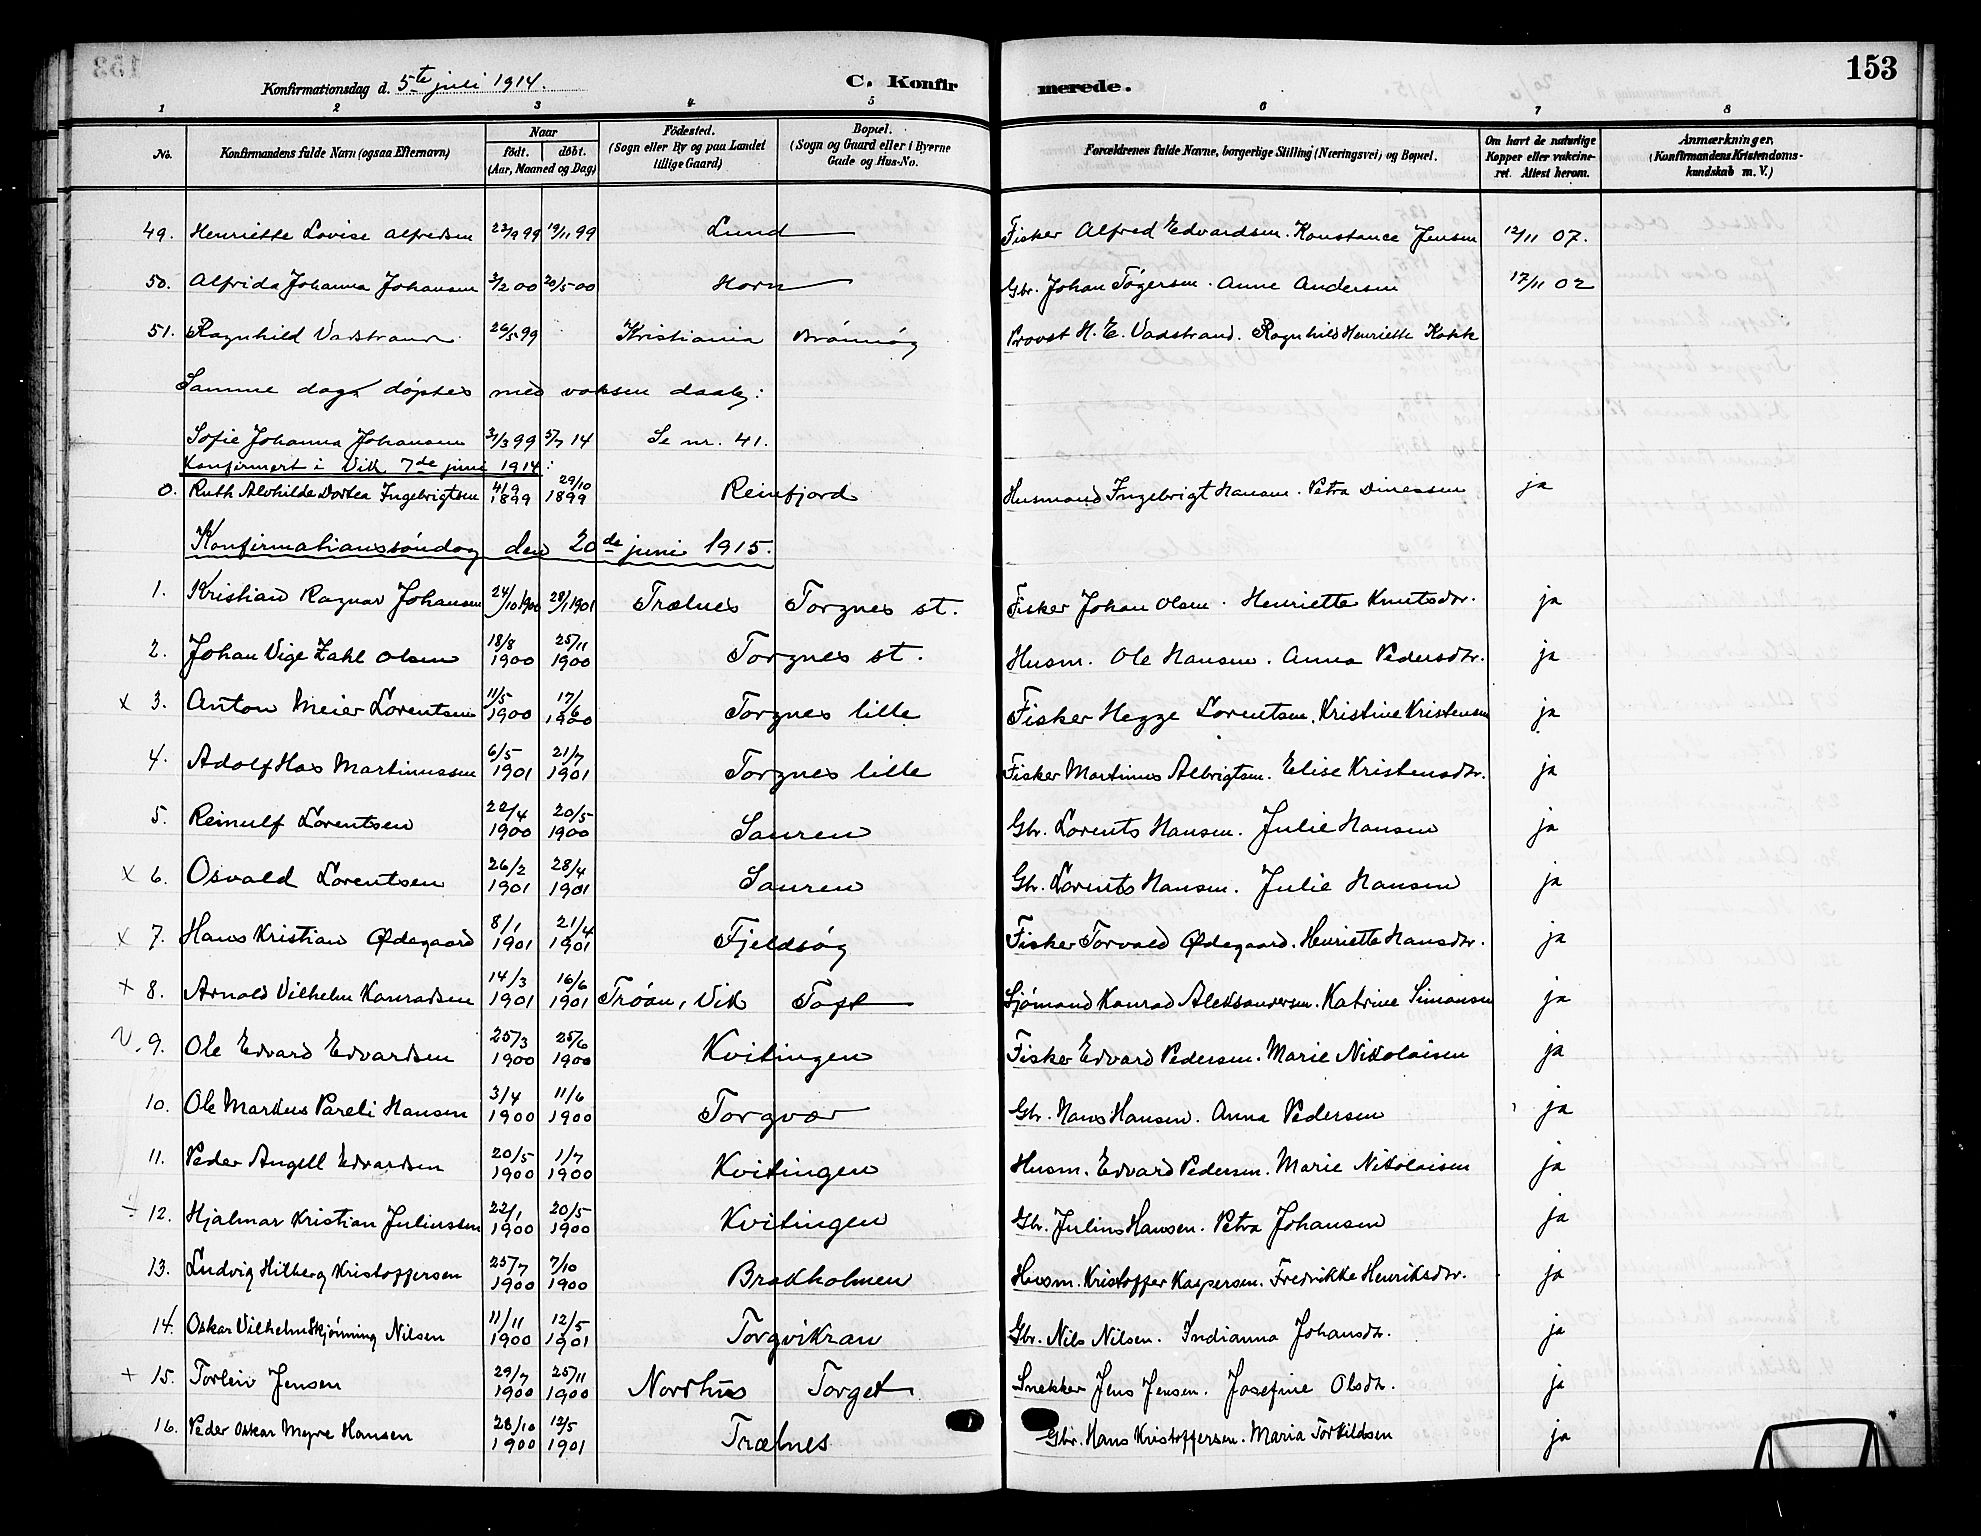 Konfirmationsdag d. 5te juli 1914. C. Konfirmerede. 153
1 2 3 4 5 6 7 8
No. Konfirmandens fulde Navn (ogsaa Efternavn) Naar födt. döbt. (Aar, Maaned og Dag) Födested. (Sogn eller By og paa Landet tillige Gaard) Bopæl. (Sogn og Gaard eller i Byerne Gade og Hus-No. Forældrenes fulde Navne, borgerlige Stilling (Næringsvei) og Bopæl. Om havt de naturlige Kopper eller vakcineret. Attest herom. Anmærkninger, (Konfirmandens Kristendomskundskab m. V.)
49. Henriette Lovise Alfredsen 22/9 99 19/11 99 Lund Fisker Alfred Edvardsen. Konstance Jensen 12/11 07.
50. Alfrida Johanna Johansen 3/2 00 20/5 00 Horn Gbr. Johan Tögersen. Anne Andersen 17/11 02
51. Ragnhild Vadstrand 26/5 99 Kristiania Brönnög Provst H. E. Vadstrand. Ragnhild Henriette Kokk
Samme dag döptes med voksen daab:
Sofie Johanna Johansen 31/3 99 5/7 14 Se nr. 41.
Konfirmert i Vik 7de juni 1914:
0. Ruth Alvhilde Dortea Ingebrigtsen 4/9 1899 29/10 1899 Reinfjord Husmand Ingebrigt Hansen. Petra Dinessen ja
Konfirmationssöndag den 20de juni 1915.
1. Kristian Ragnar Johansen 24/10 1900 28/1 1901 Trælnes Torgnes st. Fisker Johan Olsen. Henriette Knutsdtr. ja
2. Johan Vige Zahl Olsen 18/8 1900 25/11 1900 Torgnes st. Husm. Ole Hansen. Anna Pedersdtr. ja
x 3. Anton Meier Lorentsen 11/5 1900 17/6 1900 Torgnes lille Fisker Hegge Lorentsen. Kristine Kristensen ja
4. Adolf Has Martinussen 6/5 1901 21/7 1901 Torgnes lille Fisker Martinus Albrigtsen. Elise Kristensdtr. ja
5. Reinulf Lorentsen 22/4 1900 20/5 1900 Sauren Gbr. Lorents Hansen. Julie Hansen ja
x 6. Osvald Lorentsen 26/2 1901 28/4 1901 Sauren Gbr. Lorents Hansen. Julie Hansen ja
x 7. Hans Kristian Ødegaard 8/1 1901 21/4 1901 Fjeldsög Fisker Torvald Ødegaard. Henriette Hansdtr. ja
+ 8. Arnold Vilhelm Konradsen 14/3 1901 16/6 1901 Tröan, Vik Toft Sjömand Konrad Aleksandersen. Katrine Simonsen ja
v. 9. Ole Edvard Edvardsen 25/3 1900 25/6 1900 Kvitingen Fisker Edvard Pedersen. Marie Nikolaisen ja
10. Ole Markus Pareli Hansen 3/4 1900 11/6 1900 Torgvær Gbr. Hans Hansen. Anna Pedersen ja
11. Peder Angell Edvardsen 20/5 1900 1/7 1900 Kvitingen Husm. Edvard Pedersen. Marie Nikolaisen ja
÷ 12. Hjalmar Kristian Juliussen 22/1 1900 20/5 1900 Kvitingen Gbr. Julius Hansen. Petra Johansen ja
13. Ludvig Hilberg Kristoffersen 25/7 1900 7/10 1900 Brakholmen Husm. Kristoffer Kaspersen. Fredrikke Henriksdtr. ja
14. Oskar Vilhelm Skjönning Nilsen 11/11 1900 12/5 1901 Torgvikran Gbr. Nils Nilsen. Indianna Johansdtr. ja
+ 15. Torleiv Jensen 29/7 1900 25/11 1900 Nordhus Torget Snekker Jens Jensen. Josefine Olsdtr. ja
16. Peder Oskar Myre Hansen 28/10 1900 12/5 1901 Trælnes Gbr. Hans Kristoffersen. Maria Torkildsen ja